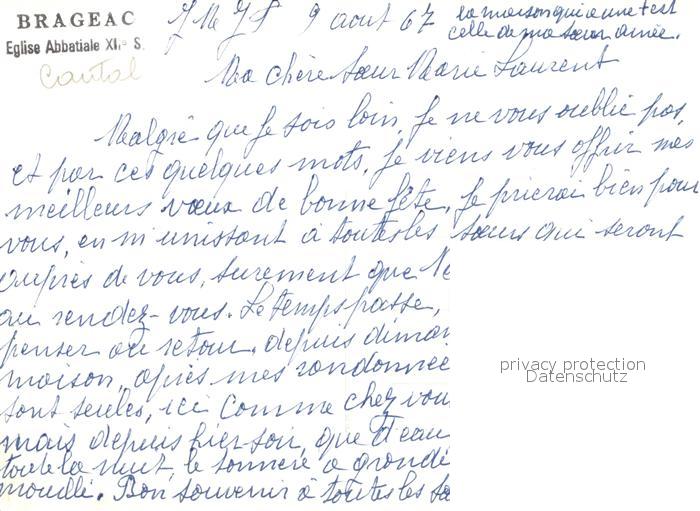 BRAGEAC
Eglise Abbatiale XIIe S.
Cantal
J M J F 9 aout 67
la maison qui a une + est
celle de ma sœur ainée.
Ma chère sœur Marie Laurent
Malgré que je sois loin, je ne vous oublie pas,
et par ces quelques mots, je viens vous offrir mes
meilleurs vœux de bonne fête, je prierai bien pour
vous, en m'unissant à toutes les sœurs qui seront
auprès de vous, surement que
au rendez-vous. Le temps passe,
penser au retour. depuis
maison, après mes
sont seules, ici comme chez
mais depuis hier soir, que d'eau
toute la nuit, le tonnere a
mouillé. Bon souvenir à toutes les
privacy protection
Datenschutz